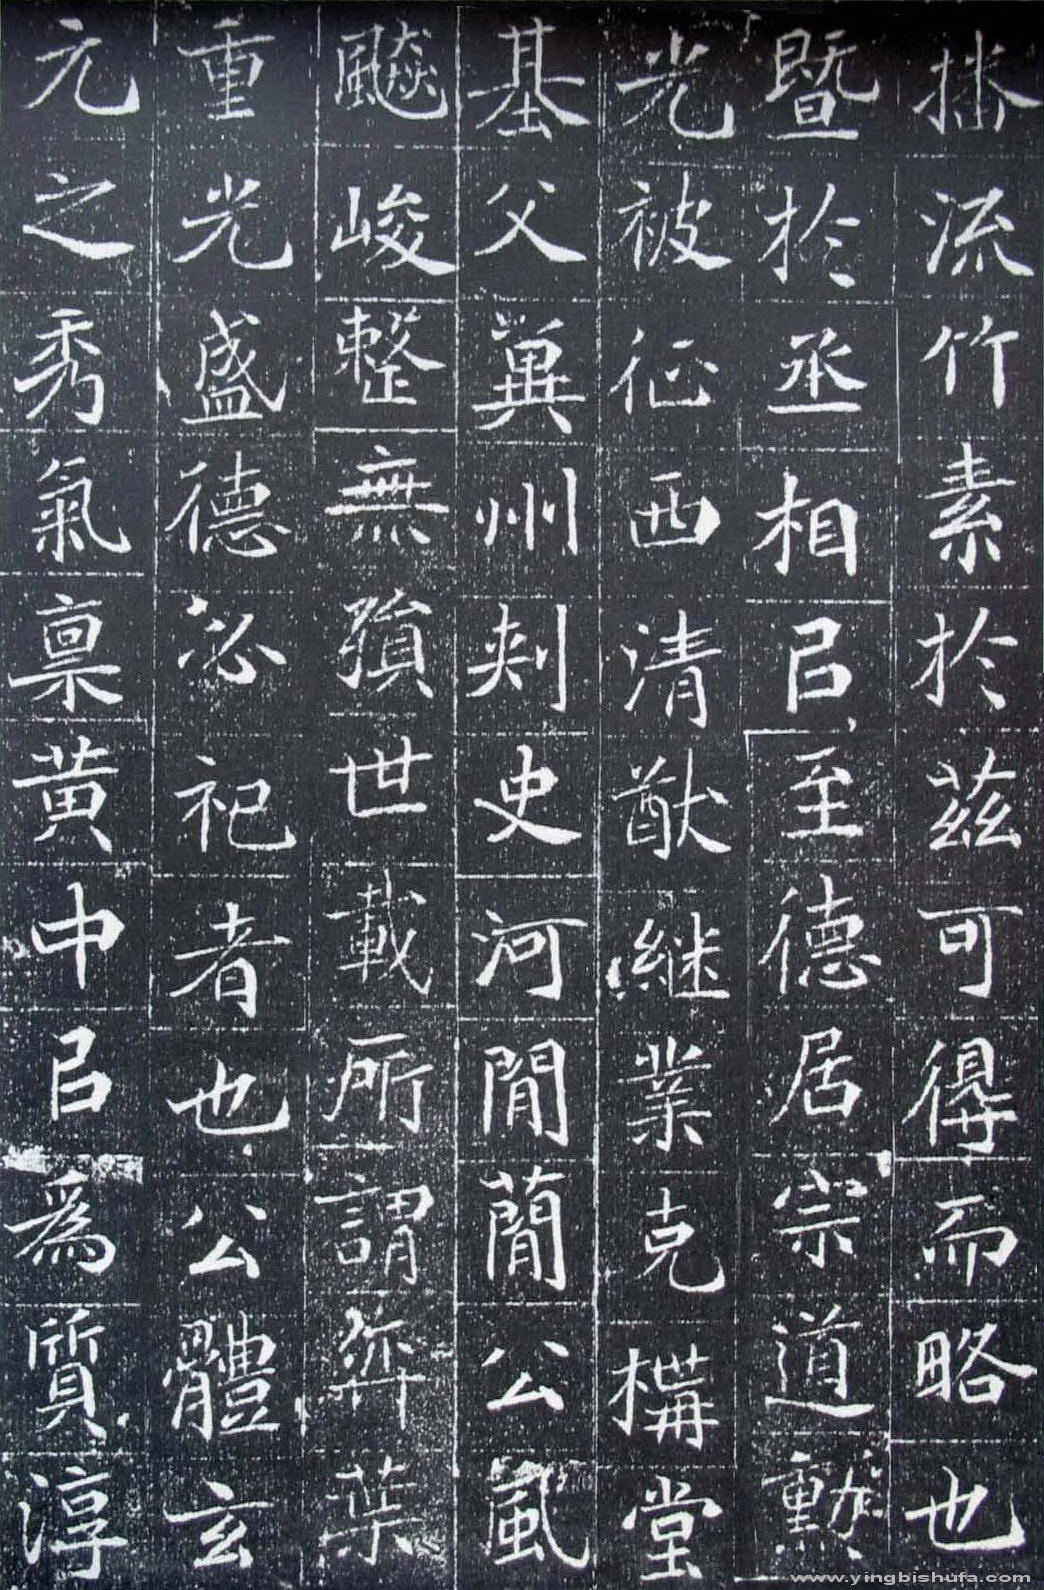 播流竹素於茲可得而略也
暨於丞相㠯至德居宗道勳
光被征西清猷継業克構堂
基父冀州刾史河閒蕳公風
飈峻整無殞世載所謂弈葉
重光盛德必祀者也公體玄
元之秀氣稟黃中㠯爲質淳
www.yingbishufa.com